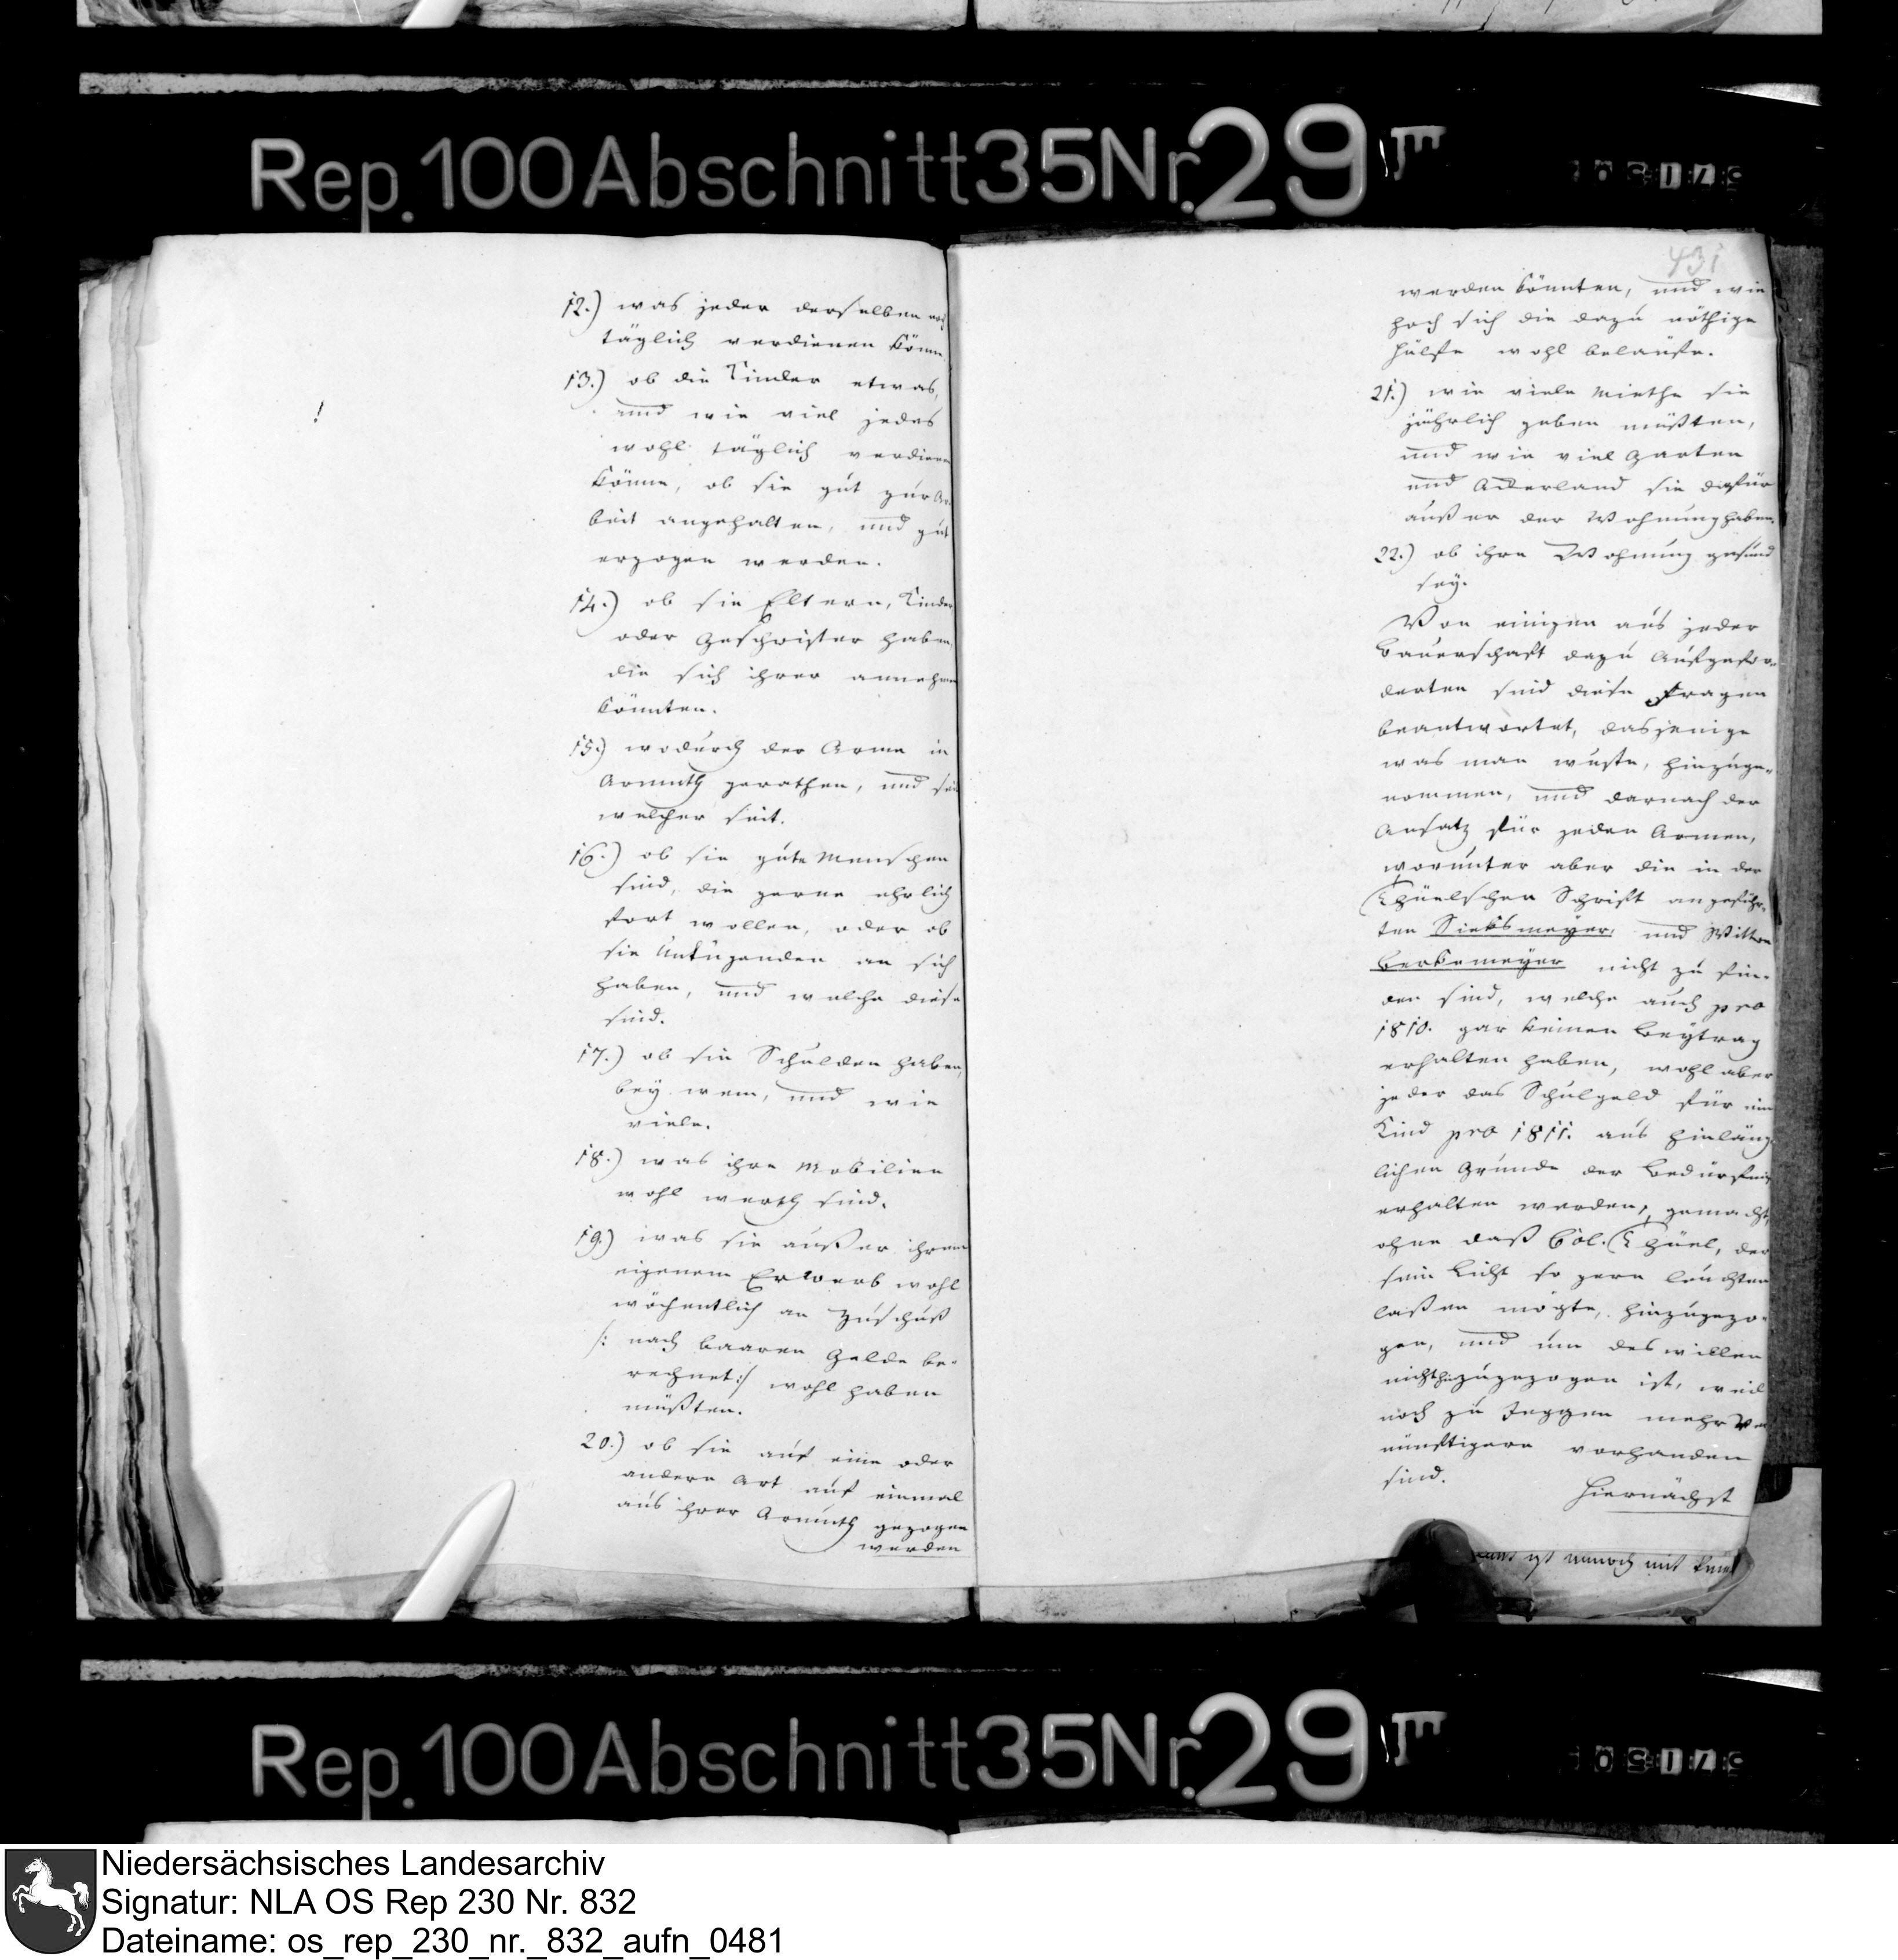 Rep. 100 Abschnitt 35 Nr. 29
12.) was jeder derselben
täglich verdienen könne.
13.) ob die Kinder etwas,
und wie viel jedes
wohl täglich verdienen
könne, ob sie gut zur Ar-
beit angehalten, und gut
erzogen werden.
14.) ob sie Eltern, Kinder
oder Geschwister haben,
die sich ihrer annehmen
könnten.
15.) wodurch der Arme in
Armuth gerathen, und seit
welcher Zeit.
16.) ob sie gute Menschen
sind, die gerne ehrlich
fort wollen, oder ob
sie Untugenden an sich
haben, und welche diese
sind.
17.) ob sie Schulden haben,
bey wem, und wie
viele.
18.) was ihre Mobilien
wohl werth sind.
19.) was sie außer ihrem
eigenem Erwerb wohl
wöchentlich an Zuschuß
/: nach baaren Gelde be-
rechnet :/ wohl haben
müßten.
20.) ob sie auf eine oder
andere Art auf einmal
aus ihrer Armuth gezogen
werden
431
werden könnten, und wie
hoch sich die dazu nöthige
Hülfe wohl belaufe.
21.) wie viele Miethe sie
jährlich geben müßten,
und wie viel Garten
und Ackerland sie dafür
außer der Wohnung haben.
22.) ob ihre Wohnung gesund
sey.
Von einigen aus jeder
Bauerschaft dazu Aufgefor-
derten sind diese Fragen
beantwortet, dasjenige
was man wuste, hinzuge-
nommen, und darnach der
Ansatz für jeden Armen,
worunter aber die in der
Thüelschen Schrift angeführ-
ten Sieksmeyer, und Wittwe
Berkemeyer nicht zu fin-
den sind, welche auch pro
1810. gar keinen Beytrag
erhalten haben, wohl aber
jeder das Schulgeld für ein
Kind pro 1811. aus hinläng-
lichen Grunde der Bedürfniß
erhalten werden, gemacht,
ohne daß Col. Thüel, der
sein Licht so gern leuchten
laßen mögte, hinzugezo-
gen, und um deswillen
nicht hinzugezogen ist, weil
noch zu Jeggen mehr Ver
nünftigere vorhanden
sind.
Hiernächst
ist annoch mit
Rep. 100 Abschnitt 35 Nr. 29
Niedersächsisches Landesarchiv
Signatur: NLA OS Rep 230 Nr. 832
Dateiname: os_rep_230_nr._832_aufn_0481